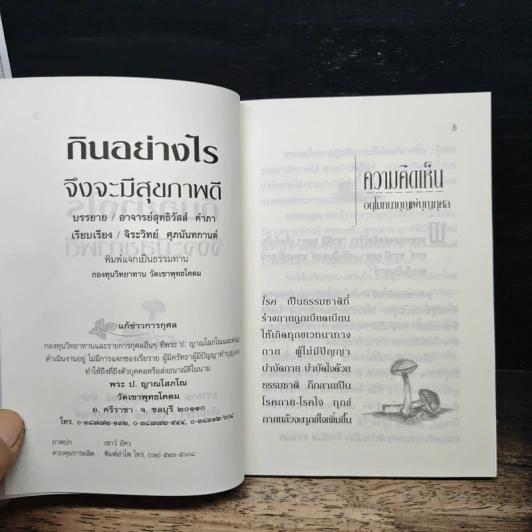 กินอย่างไร
จึงจะมีสุขภาพดี
บรรยาย / อาจารย์สุทธิวัสส์ คำภา
เรียบเรียง / จิระวิทย์ ศุภนันทกานต์
พิมพ์แจกเป็นธรรมทาน
กองทุนวิทยาทาน วัดเขาพุทธโคดม
แก้ข่าวการกุศล
กองทุนวิทยาทานและรายการกุศลอื่นๆ ที่พระ ป. ญาณโสภโณ
ดำเนินงานอยู่ ไม่มีการแจกซองเรี่ยราย ผู้มีศรัทธาผู้มีปัญญา
ทำให้ถึงที่ถึงตัวบุคคลหรือส่งธนาณัติในนาม
พระ ป. ญาณโสภโณ
วัดเขาพุทธโคดม
อ. ศรีราชา จ. ชลบุรี ๒๐๑๑๐
โทร.
ภาพปก : เชาว์
ควบคุมการผลิต : พิมพ์อำไพ โทร. (๐๒)
๕
ความคิดเห็น
อนุโมทนาบุญแพ่บุญกุศล
โรค เป็นธรรมชาติที่
ร่างกายถูกเบียดเบียน
ให้เกิดทุกขเวทนาทาง
กาย ผู้ไม่มีปัญญา
บำบัดกาย บำบัดใจด้วย
ธรรมชาติ ก็กลายเป็น
โรคกาย-โรคใจ ทุกข์
กายแล้วจะทุกข์ใจเพิ่มขึ้น